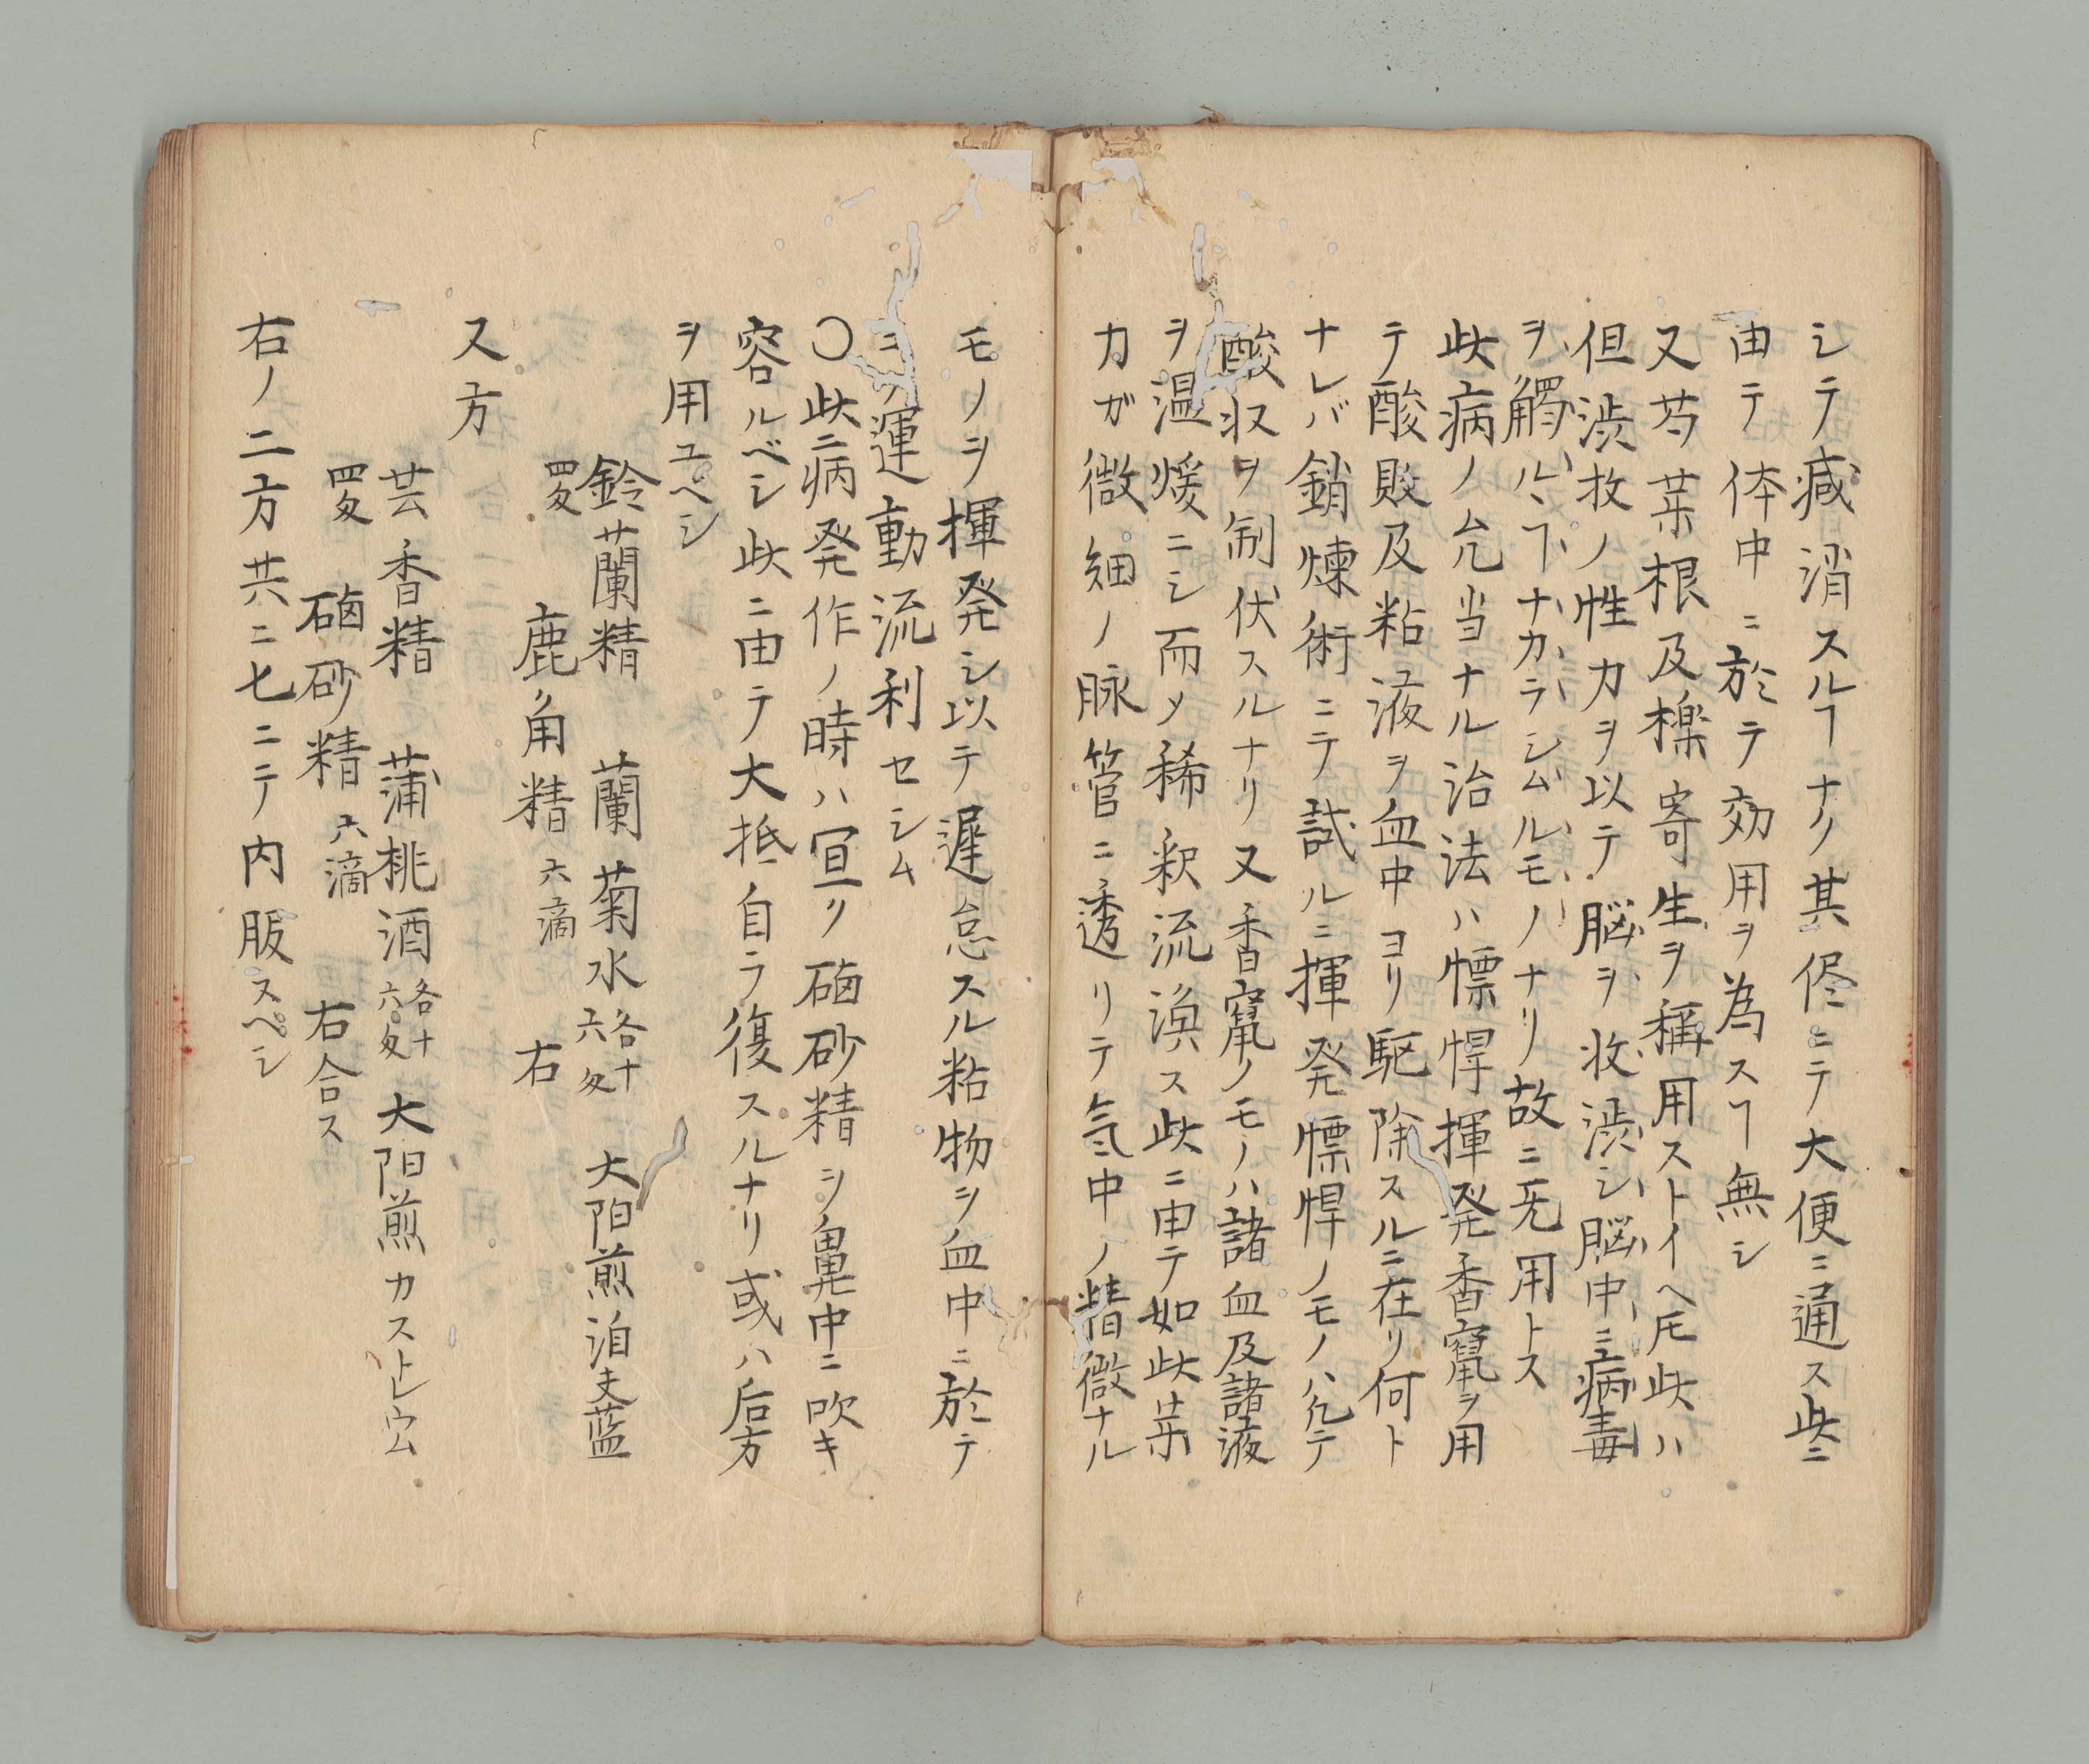 シテ減消スルヿナク其侭ニテ大便ニ通ス此ニ
由テ体中ニ於テ効用ヲ為スヿ無シ
又芍薬根及檪寄生ヲ稱用ストイヘ𪜈此ハ
但渋收ノ性力ヲ以テ脳ヲ收渋シ脳中ニ病毒
ヲ觸ルヽヿナカラシムルモノナリ故ニ無用トス
此病ノ允当ナル治法ハ慓悍揮発香竄ヲ用
テ酸敗及粘液ヲ血中ヨリ駆除スルニ在リ何ト
ナレバ銷煉術ニテ試ルニ揮発慓悍ノモノハ凡テ
酸収ヲ制伏スルナリ又香竄ノモノハ諸血及諸液
ヲ温煖ニシ而メ稀釈流渙ス此ニ由テ如此薬
力ガ微細ノ脉管ニ透リテ気中ノ精微ナル
モノヲ揮発シ以テ遅怠スル粘物ヲ血中ニ於テ
ニ運動流利セシム
〇此ニ病発作ノ時ハ宜ク磠砂精ヲ鼻中ニ吹キ
容ルベシ此ニ由テ大抵自ラ復スルナリ或ハ后方
ヲ用ユヘシ
鈴蘭精 蘭菊水 各十六匁 大阳煎泊夫藍
四匁 鹿角精 六滴 右
又方
芸香精 蒲桃酒 各十六匁 大阳煎カストレウム
四匁 磠砂精 六滴 右合ス
右ノ二方共ニ七ニテ内服スベシ